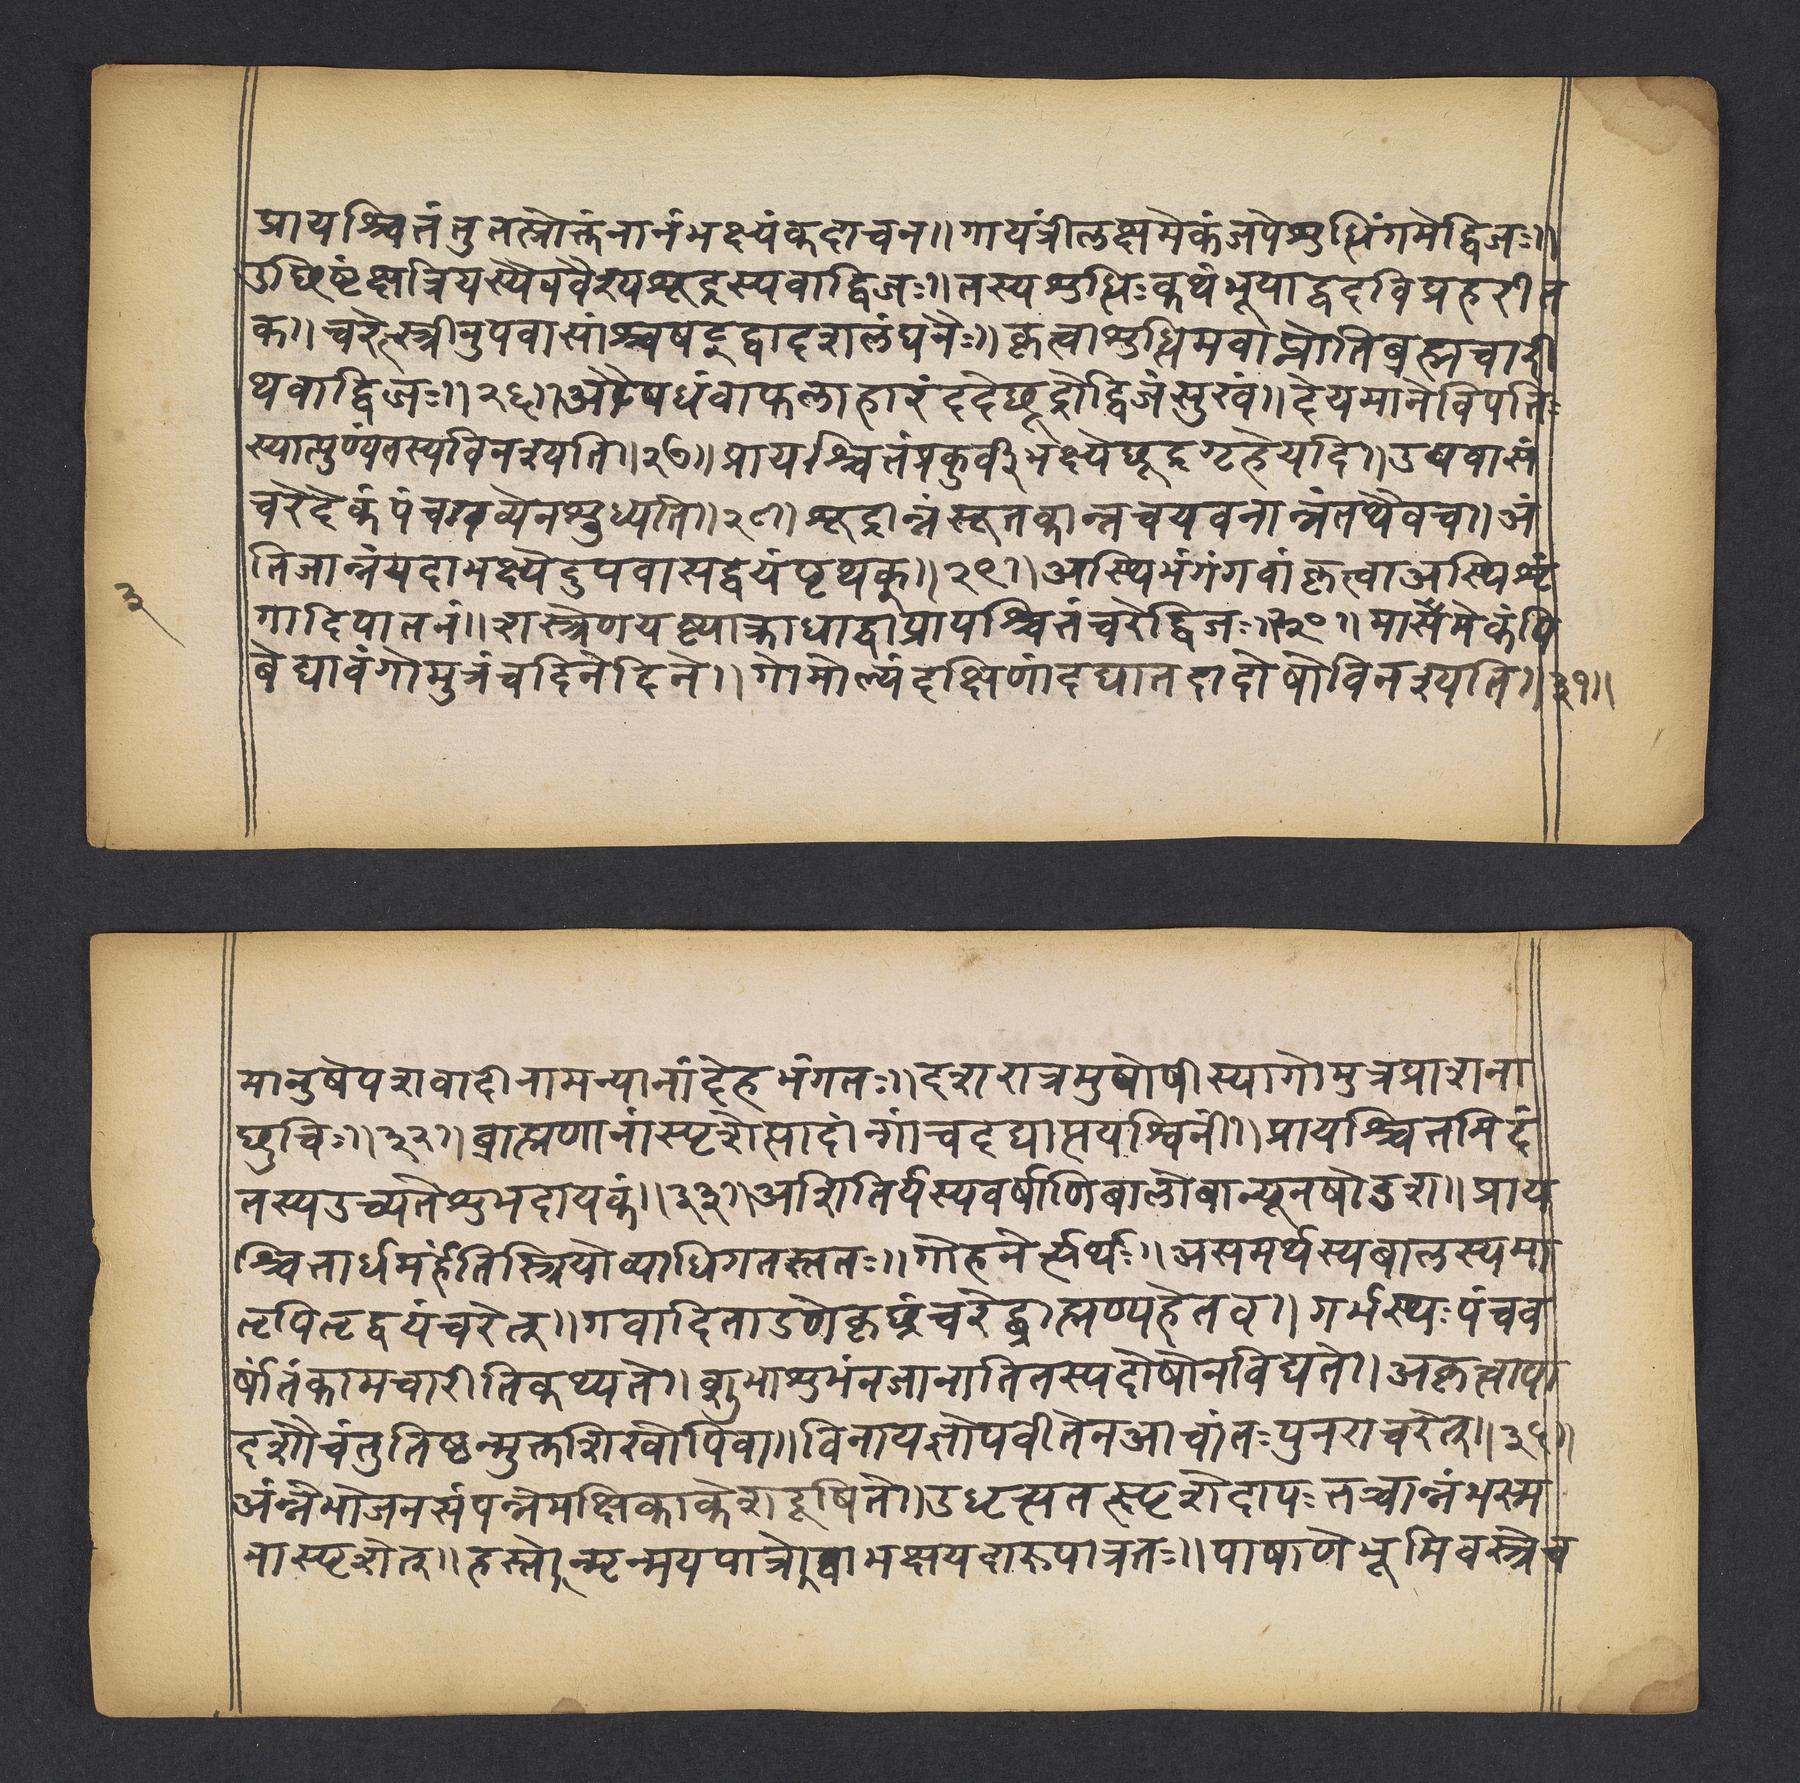 प्रायश्चितंतुतत्प्रोक्तंनानंभक्ष्यंकदाचन॥गायंत्रीलक्षमेकंजपेशुध्धिंगमेद्विजः॥
उछिष्टंक्षत्रियस्यैववैश्यशूद्रस्यवाद्विजः॥तस्यशुध्धिःकथंभूयाद्वदविप्रहरीत
क॥चरेत्स्त्रीनुपवासांश्चषट्द्वादशलंघनैः॥कृत्वाशुध्धिमवाप्नोतिब्रह्मचारी
थवाद्विजः॥२६॥औषधंवाफलाहारंददेछूद्रोद्विजंसुखं॥देयमानेविपतिः
स्यात्पुण्यंतस्यविनश्यति॥२७॥प्रायश्चितंप्रकुर्वीभक्ष्येछूद्रगृहेयदि॥उपवासं
चरेदेकंपंचगव्येनशुध्यति॥२८॥शूद्रान्नंसूतकान्नचयवनान्नंतथैवच॥अं
तिजान्नंयदाभक्ष्येदुपवासद्वयंपृथक्॥२९॥अस्थिभंगंगवांकृत्वाअस्थिशृं
गादिपातनं॥शस्त्रेणयष्ट्याक्ताधाद्वाप्रायश्चितंचरेद्विजः॥३०॥मासमेकंपि
३
बेद्यावंगोमुत्रंचदिनेदिने॥गोमोल्यंदक्षिणांदद्यातदादोषोविनश्यति॥३१॥
मानुषेपशवादीनामन्यानांदेहभंगतः॥दशरात्रमुषोषीस्यागोमुत्रप्राशना
छुचिः॥३२॥ब्राह्मणानांस्पृशेत्पादांन्गांचदद्यात्पयश्विनीं॥प्रायश्चितमिदं
तस्यउच्यतेशुभदायकं॥३३॥अशितिर्यस्यवर्षाणिबालोवान्यूनषोडश॥प्राय
श्चितार्धमर्हंतिस्त्रियोव्याधिगतस्ततः॥गोहनेर्त्यर्थः॥असमर्थस्यबालस्यमा
तृपितृद्वयंचरेत्॥गवादिताडणेकृछ्रंचरेद्ब्राह्मण्यहेतव॥गर्भस्थःपंचव
र्षांतंकामचारीतिकथ्यते॥शुभाशुभंनजानातितस्यदोषोनविद्यते॥अकृत्वापा
दशौचंतुतिष्ठन्मुक्तशिखोपिवा॥विनायज्ञोपवीतेनआचांतःपुनराचरेत्॥३६॥
अंन्नेभोजनसंपन्नेमक्षिकाकेशदूषिते॥उधृत्स्यतत्स्पृशेदापःतच्चान्नंभस्म
नास्पृशेत्॥हस्तेन्मृन्मयपात्रेवाभक्षयदारुपात्रतः॥पाषाणेभूमिवस्त्रेच